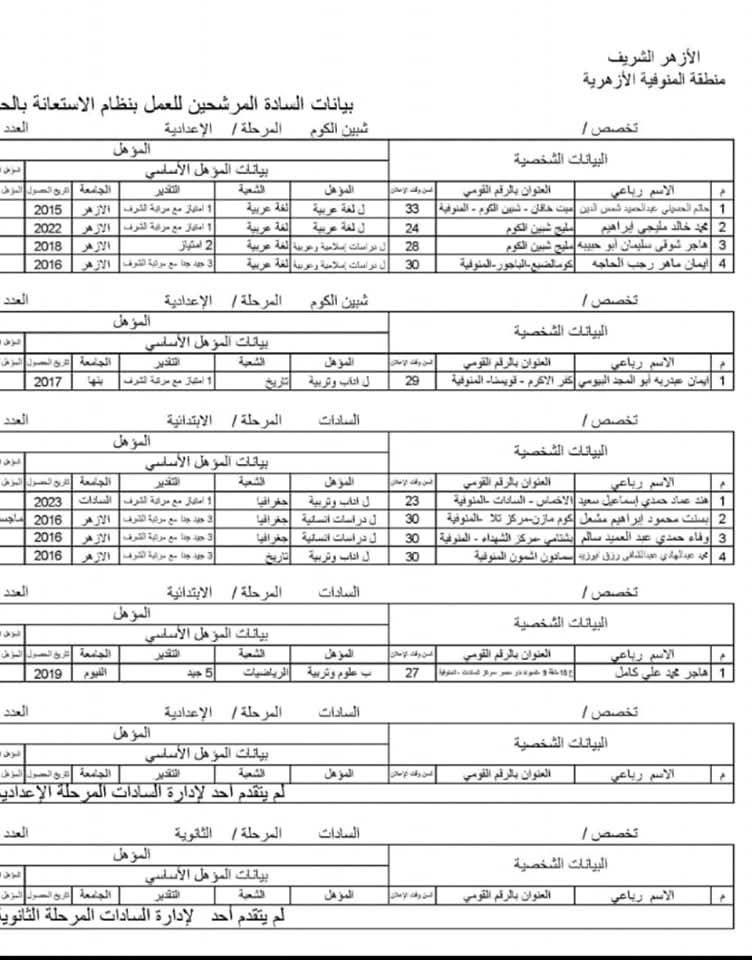 الأزهر الشريف
منطقة المنوفية الأزهرية
بيانات السادة المرشحين للعمل بنظام الاستعانة بالح
تخصص / شبين الكوم المرحلة / الإعدادية العدد
البيانات الشخصية المؤهل
بيانات المؤهل الأساسي
م الاسم رباعي العنوان بالرقم القومي السن وقت الإعلان المؤهل الشعبة التقدير الجامعة تاريخ الحصول المؤهل
1 حاتم الحسيني عبدالحميد شمس الدين ميت خاقان - شبين الكوم - المنوفية 33 ل لغة عربية لغة عربية 1 امتياز مع مرتبة الشرف الازهر 2015
2 محمد خالد مليجي ابراهيم مليج شبين الكوم 24 ل لغة عربية لغة عربية 1 امتياز مع مرتبة الشرف الازهر 2022
3 هاجر شوقي سليمان أبو حبيبه مليج شبين الكوم 28 ل دراسات إسلامية وعربية لغة عربية 2 امتياز الازهر 2018
4 ايمان ماهر رجب الحاجه كوم الضبع-الباجور-المنوفية 30 ل دراسات إسلامية وعربية لغة عربية 3 جيد جدا مع مرتبة الشرف الازهر 2016
تخصص / شبين الكوم المرحلة / الإعدادية العدد
البيانات الشخصية المؤهل
بيانات المؤهل الأساسي
م الاسم رباعي العنوان بالرقم القومي السن وقت الإعلان المؤهل الشعبة التقدير الجامعة تاريخ الحصول المؤهل
1 ايمان عبدربه أبو المجد البيومي كفر الاكرم - قويسنا- المنوفية 29 ل اداب وتربية تاريخ 1 امتياز مع مرتبة الشرف بنها 2017
تخصص / السادات المرحلة / الابتدائية العدد
البيانات الشخصية المؤهل
بيانات المؤهل الأساسي
م الاسم رباعي العنوان بالرقم القومي السن وقت الإعلان المؤهل الشعبة التقدير الجامعة تاريخ الحصول المؤهل
1 هند عماد حمدي إسماعيل سعيد الاخماس - السادات -المنوفية 23 ل اداب وتربية جغرافيا 1 امتياز مع مرتبة الشرف السادات 2023
2 بسنت محمود ابراهيم مشعل كوم مازن-مركز تلا -المنوفية 30 ل دراسات انسانية جغرافيا 3 جيد جدا مع مرتبة الشرف الازهر 2016 ماجس
3 وفاء حمدي عبد العميد سالم بشتامي -مركز الشهداء - المنوفية 30 ل دراسات انسانية جغرافيا 3 جيد جدا مع مرتبة الشرف الازهر 2016
4 محمد عبدالهادي عبدالشافى رزق ابوزيد سمادون اشمون المنوفية 30 ل اداب وتربية تاريخ 3 جيد جدا مع مرتبة الشرف الازهر 2016
تخصص / السادات المرحلة / الابتدائية العدد
البيانات الشخصية المؤهل
بيانات المؤهل الأساسي
م الاسم رباعي العنوان بالرقم القومي السن وقت الإعلان المؤهل الشعبة التقدير الجامعة تاريخ الحصول المؤهل
1 هاجر محمد علي كامل 27 ب علوم وتربية الرياضيات 5 جيد الفيوم 2019
تخصص / السادات المرحلة / الإعدادية العدد
البيانات الشخصية المؤهل
بيانات المؤهل الأساسي
م الاسم رباعي العنوان بالرقم القومي السن وقت الإعلان المؤهل الشعبة التقدير الجامعة تاريخ الحصول المؤهل
لم يتقدم أحد لإدارة السادات المرحلة الإعدادية
تخصص / السادات المرحلة / الثانوية العدد
البيانات الشخصية المؤهل
بيانات المؤهل الأساسي
م الاسم رباعي العنوان بالرقم القومي السن وقت الإعلان المؤهل الشعبة التقدير الجامعة تاريخ الحصول المؤهل
لم يتقدم أحد لإدارة السادات المرحلة الثانوية